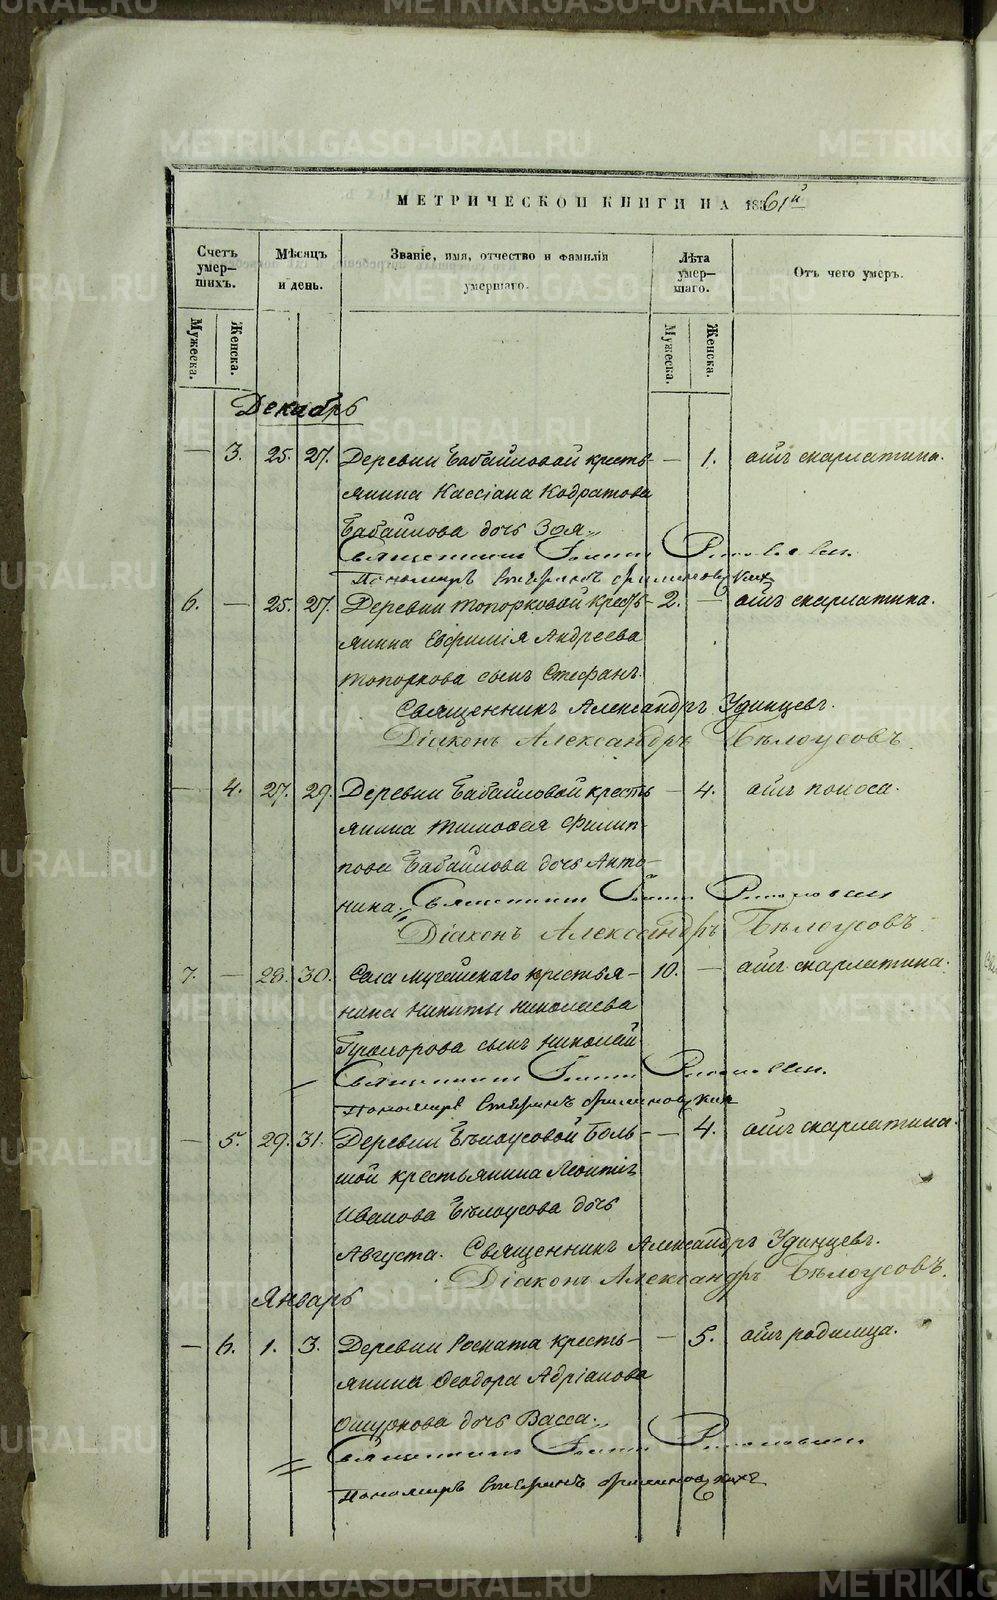 МЕТРИЧЕСКОЙ КНИГИ НА 1861й
Счетъ умер-шихъ.
Мѣсяцъ и день.
Званіе, имя, отчество и фамилія умершаго.
Лѣта умер-шаго.
Отъ чего умеръ.
Мужеска.
Женска.
Мужеска.
Женска.
Декабрь
— 3. 25. 27. Деревни Бабайловой кресть- — 1. отъ скарлатина.
янина Кассіана Кодратова
Бабайлова дочь Зоя.
Священникъ
Пономарь
6. — 25. 27. Деревни Топорковой кресть- 2. — отъ скарлатина.
янина Евфимія Андреева
Топоркова сынъ Стефанъ.
Священникъ Александръ Удинцевъ.
Діаконъ Александръ Бѣлоусовъ.
— 4. 27. 29. Деревни Бабайловой кресть — 4. отъ поноса.
янина Тимофея Филип-
пова Бабайлова дочь Анто-
нина. Священникъ
Діаконъ Александръ Бѣлоусовъ.
7. — 28. 30. Села крестья- 10. — отъ скарлатина.
нина Никиты Николаева
сынъ Николай
Священникъ
Пономарь
— 5. 29. 31. Деревни Бѣлоусовой Боль- — 4. отъ скарлатина.
шой крестьянина Леонтія
Иванова Бѣлоусова дочь
Августа. Священникъ Александръ Удинцевъ.
Діаконъ Александръ Бѣлоусовъ.
Январь
— 6. 1. 3. Деревни кресть- — 5. отъ родимца.
янина Ѳеодора Адріанова
Ошуркова дочь Васса.
Священникъ
Пономарь
METRIKI.GASO-URAL.RU